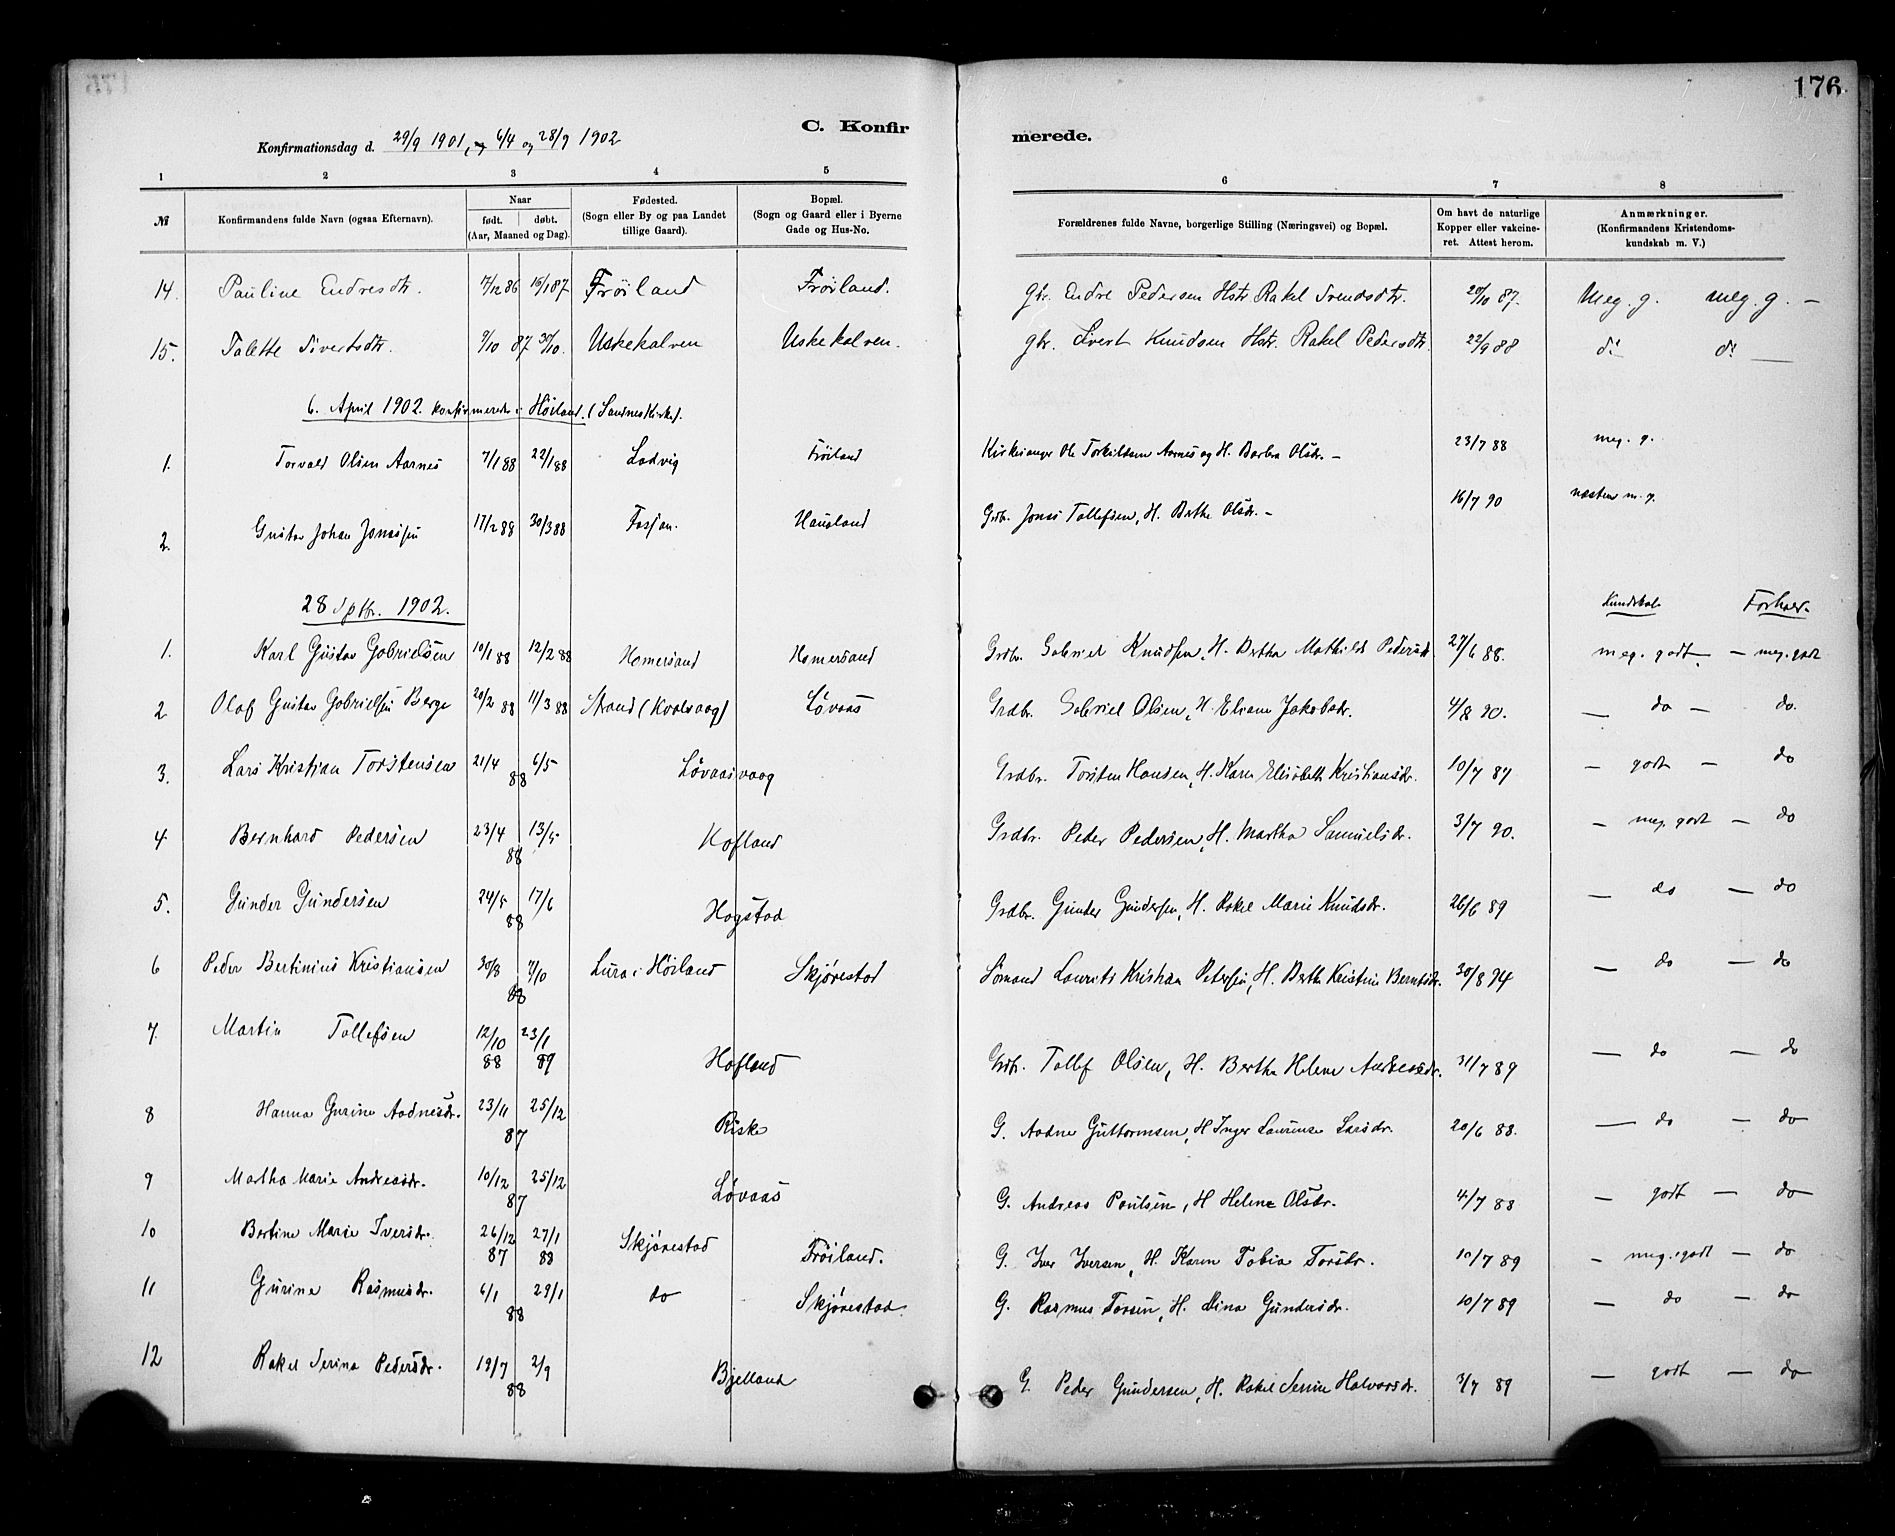 176
C. Konfirmerede.
Konfirmationsdag d. 29/9 1901, og 6/4 og 28/9 1902
1 2 3 4 5 6 7 8
№ Konfirmandens fulde Navn (ogsaa Efternavn). Naar født. døbt. (Aar, Maaned og Dag). Fødested. (Sogn eller By og paa Landet tillige Gaard). Bopæl. (Sogn og Gaard eller i Byerne Gade og Hus-No. Forældrenes fulde Navne, borgerlige Stilling (Næringsvei) og Bopæl. Om havt de naturlige Kopper eller vakcineret. Attest herom. Anmærkninger. (Konfirmandens Kristendomskundskab m. V.)
14. Pauline Endresdtr. 17/12 86 15/1 87 Frøiland Frøiland. gbr. Endre Pedersen Hstr Rakel Svendsdtr. 20/10 87. Meg. g. meg. g. —
15. Talette Sivertsdtr. 9/10 87 30/10. Uskekalven Uskekalven. gbr. Sivert Knudsen Hstr. Rakel Pedersdtr. 22/9 88 do do —
6. April 1902. konfirmerede i Høiland. (Sandnes Kirke).
1. Torvald Olsen Aarnes 7/1 88 22/1 88 Ladvig Frøiland Kirkesanger Ole Torkildsen Aarnes og H. Barbra Olsdr. — 23/7 88 meg. g.
2. Gustav Johan Jonassen 17/2 88 30/3 88 Hausland Grdbr. Jonas Tollefsen, H. Berthe Olsdr. — 16/7 90 næsten m. g.
28 Sptbr. 1902.
Kundskab Forhold.
1. Karl Gustav Gabrielsen 10/1 88 12/2 88 Homersand Homersand Grdbr. Gabriel Knudsen, H. Bertha Mathilde Pedersdr 27/6 88. meg. godt. — meg. godt
2 Olaf Gustav Gabrielsen Berge 20/2 88 11/3 88 Strand (Kvalvaag) Løvaas Grdbr. Gabriel Olsen, H. Eliane Jakobsdr. 4/8 90. — do — do.
3. Lars Kristian Torstensen 21/4 88 6/5 Løvaasvaag Grdbr. Torsten Hansen, H. Karen Elisabeth Kristiansdr. 10/7 87 — godt — do
4. Bernhard Pedersen 23/4 88 13/5 Hofland Grdbr. Peder Pedersen, H. Martha Samuelsdr. 3/7 90. — meg. godt — do
5. Gunder Gundersen 24/5 88 17/6 Hogstad Grdbr. Gunder Gundersen, H. Rakel Marie Knudsdr. 26/6 89 — do — do
6 Peder Bertinius Kristiansen 30/8 88 7/10 Lura i Høiland Skjørestad Sømand Laurits Kristian Petersen, H. Berthe Kristine Berntsdr. 30/8 94 — do — do
7. Martin Tollefsen 12/10 88 23/1 89 Hofland Grdbr. Tollef Olsen, H. Bertha Helene Andreasdr. 31/7 89 — do — do
8 Hanna Gurine Aadnesdr. 23/11 87 25/12 Riske G. Aadne Guttormsen, H Inger Laurense Larsdr. 20/6 88. — do — do
9 Martha Marie Andreasdr. 10/12 87 25/12 Løvaas G. Andreas Paulsen, H Helene Olsdr. 4/7 88 — godt — do
10 Bertine Marie Iversdr. 26/12 87 27/1 88 Skjørestad Frøiland. G. Iver Iversen, H. Karen Tobia Torsdr. 10/7 89 — meg. godt — do
11 Gurine Rasmusdr. 6/1 88 29/1 do Skjørestad. G. Rasmus Torsen, H. Sina Gundersdr. 10/7 89 — do — do
12 Rakel Serina Pedersdr. 19/7 88 2/9 Bjelland G. Peder Gundersen, H. Rakel Serine Halvorsdr. 3/7 89 — godt — do